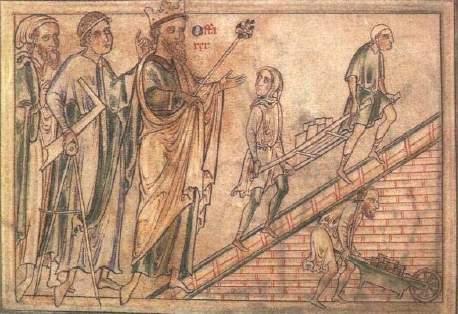 Offa
rex